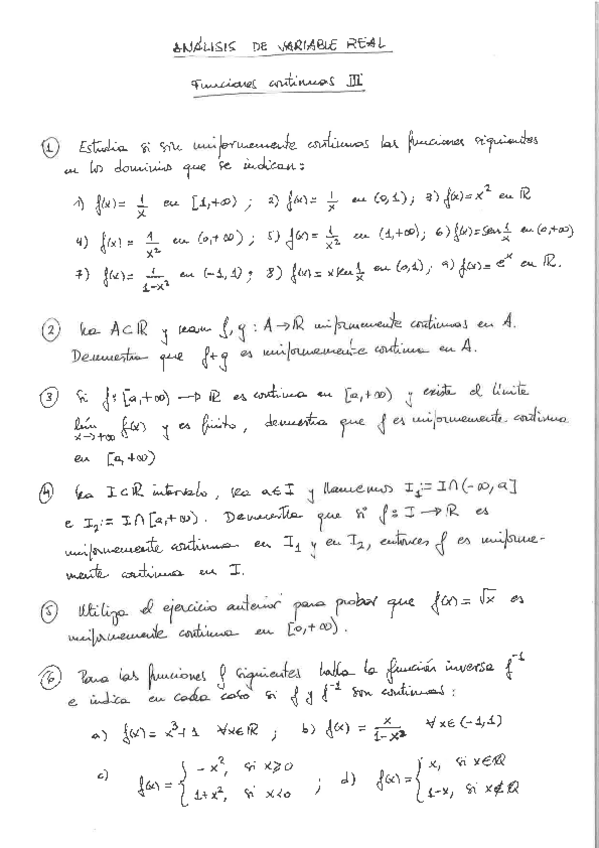 ANÁLISIS DE VARIABLE REAL
Funciones continuas III
① Estudia si son uniformemente continuas las funciones siguientes
en los dominios que se indican:
1) f(x)= 1/x en [1,+∞) ; 2) f(x)= 1/x en (0,1) ; 3) f(x)=x² en ℝ
4) f(x)= 1/x² en (0,+∞) ; 5) f(x)= 1/x² en (1,+∞) ; 6) f(x)=sen 1/x en (0,+∞)
7) f(x)= 1/(1-x²) en (-1,1) ; 8) f(x)= x sen 1/x en (0,1) ; 9) f(x)=eˣ en ℝ.
② Sea A⊂ℝ y sean f,g : A→ℝ uniformemente continuas en A.
Demuestra que f+g es uniformemente continua en A.
③ Si f:[a,+∞) → ℝ es continua en [a,+∞) y existe el límite
lím x→+∞ f(x) y es finito, demuestra que f es uniformemente continua
en [a,+∞)
④ Sea I⊂ℝ intervalo, sea a∈I y llamemos I₁:= I∩(-∞,a]
e I₂:= I∩[a,+∞). Demuestra que si f: I → ℝ es
uniformemente continua en I₁ y en I₂, entonces f es uniforme-
mente continua en I.
⑤ Utiliza el ejercicio anterior para probar que f(x)=√x es
uniformemente continua en [0,+∞).
⑥ Para las funciones f siguientes halla la función inversa f⁻¹
e indica en cada caso si f y f⁻¹ son continuas:
a) f(x)=x³+1 ∀x∈ℝ ; b) f(x)= x/(1-x²) ∀x∈(-1,1)
c) f(x)= { -x², si x≥0 ; 1+x², si x<0 ; d) f(x)= { x, si x∈ℚ ; 1-x, si x∉ℚ